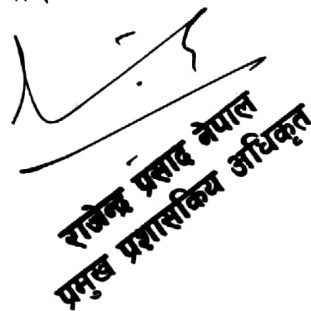 राजेन्द्र प्रसाद नेपाल
प्रमुख प्रशासकिय अधिकृत